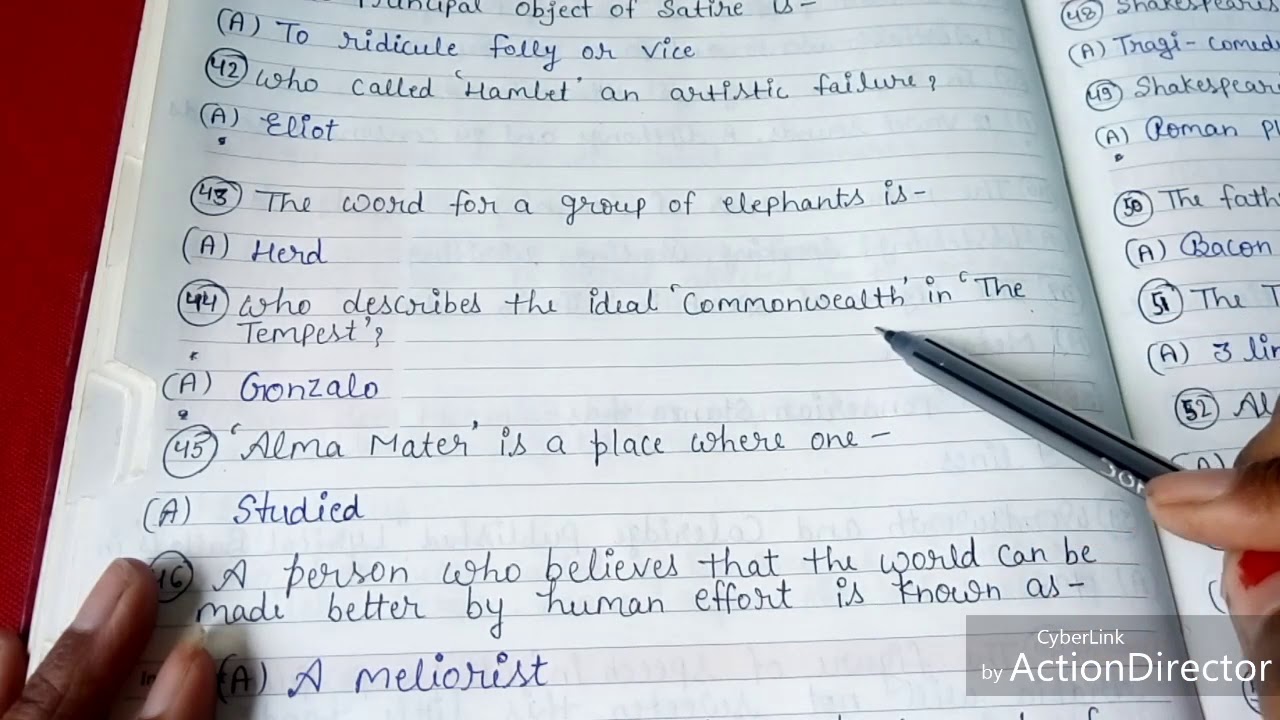 Principal object of Satire is-
(A) To ridicule folly or vice
42 who called 'Hamlet' an artistic failure?
(A) Eliot
43 The word for a group of elephants is-
(A) Herd
44 who describes the ideal 'Commonwealth' in 'The
Tempest'?
(A) Gonzalo
45 'Alma Mater' is a place where one-
(A) Studied
46 A person who believes that the world can be
made better by human effort is known as-
(A) A meliorist
48 Shakespeare's
(A) Tragi-comed
49 Shakespear
(A) Roman Pl
50 The fath
(A) Bacon
51 The T
(A) 3 lin
52 Al
(A)
CyberLink
by ActionDirector